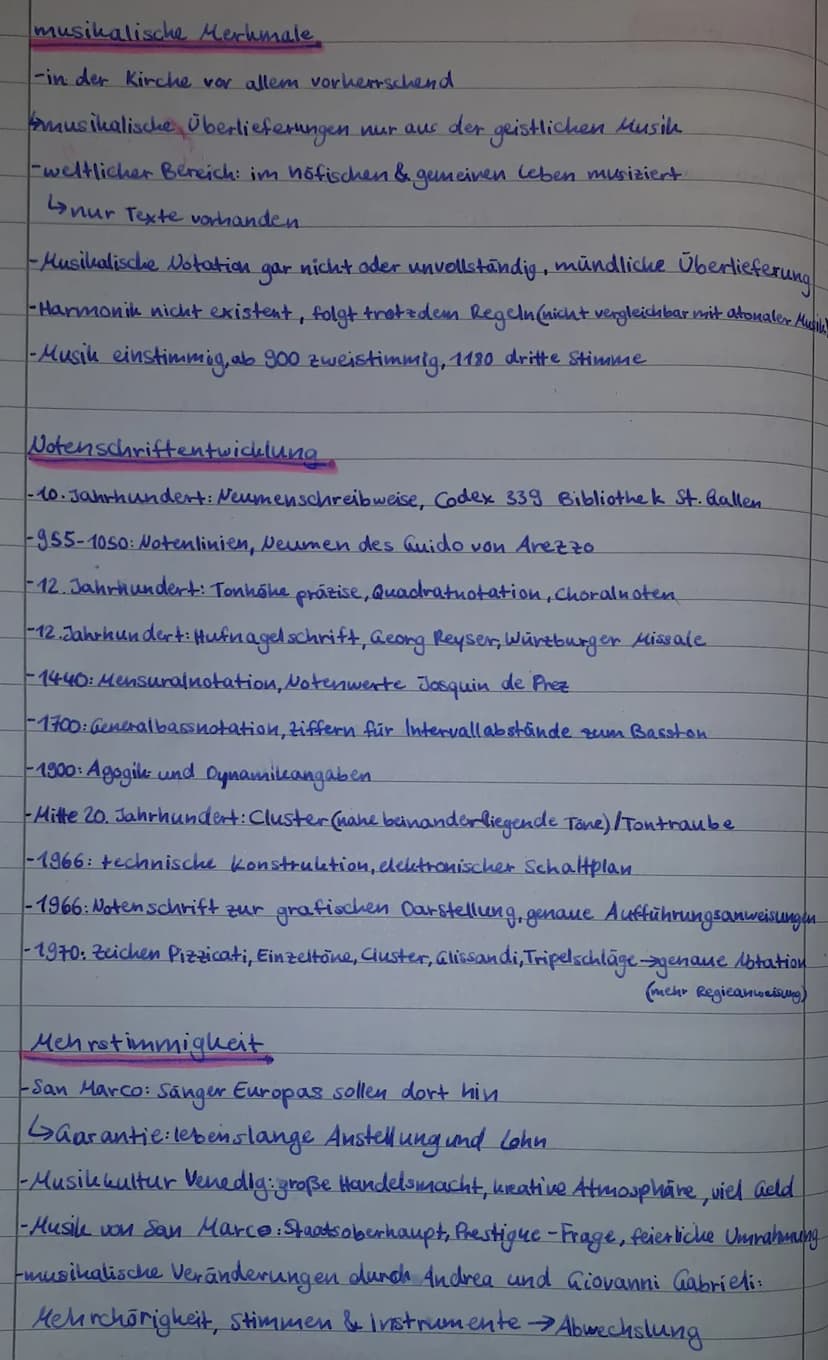 musikalische Merkmale
-in der Kirche vor allem vorherrschend
↳musikalische Überlieferungen nur aus der geistlichen Musik
-weltlicher Bereich: im höfischen & gemeinen Leben musiziert
↳nur Texte vorhanden
-Musikalische Notation gar nicht oder unvollständig, mündliche Überlieferung
-Harmonik nicht existent, folgt trotzdem Regeln (nicht vergleichbar mit atonaler Musik)
-Musik einstimmig, ab 900 zweistimmig, 1180 dritte Stimme
Notenschriftentwicklung
-10. Jahrhundert: Neumenschreibweise, Codex 339 Bibliothek St. Gallen
-955-1050: Notenlinien, Neumen des Guido von Arezzo
-12. Jahrhundert: Tonhöhe präzise, Quadratnotation, Choralnoten
-12. Jahrhundert: Hufnagelschrift, Georg Reyser, Würzburger Missale
-1440: Mensuralnotation, Notenwerte Josquin de Prez
-1700: Generalbassnotation, Ziffern für Intervallabstände zum Basston
-1900: Agogik und Dynamikangaben
-Mitte 20. Jahrhundert: Cluster (nahe beinanderliegende Töne) / Tontraube
-1966: technische Konstruktion, elektronischer Schaltplan
-1966: Notenschrift zur grafischen Darstellung, genaue Aufführungsanweisungen
-1970: Zeichen Pizzicati, Einzeltöne, Cluster, Glissandi, Tripelschläge →genaue Notation
(mehr Regieanweisung)
Mehrstimmigkeit
-San Marco: Sänger Europas sollen dort hin
↳Garantie: lebenslange Anstellung und Lohn
-Musikkultur Venedig: große Handelsmacht, kreative Atmosphäre, viel Geld
-Musik von San Marco: Staatsoberhaupt, Prestigue-Frage, feierliche Umrahmung
-musikalische Veränderungen durch Andrea und Giovanni Gabrieli:
Mehrchörigkeit, Stimmen & Instrumente → Abwechslung